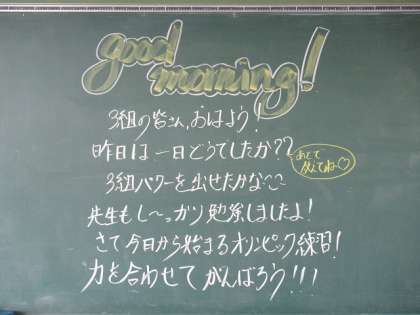 good
morning!
3組の皆さん、おはよう!
昨日は一日どうでしたか??
あとで
教えてね♡
3組パワーを出せたかな〜
先生もし〜っかり勉強しましたよ!
さて今日から始まるオリンピック練習!
力を合わせてがんばろう!!!